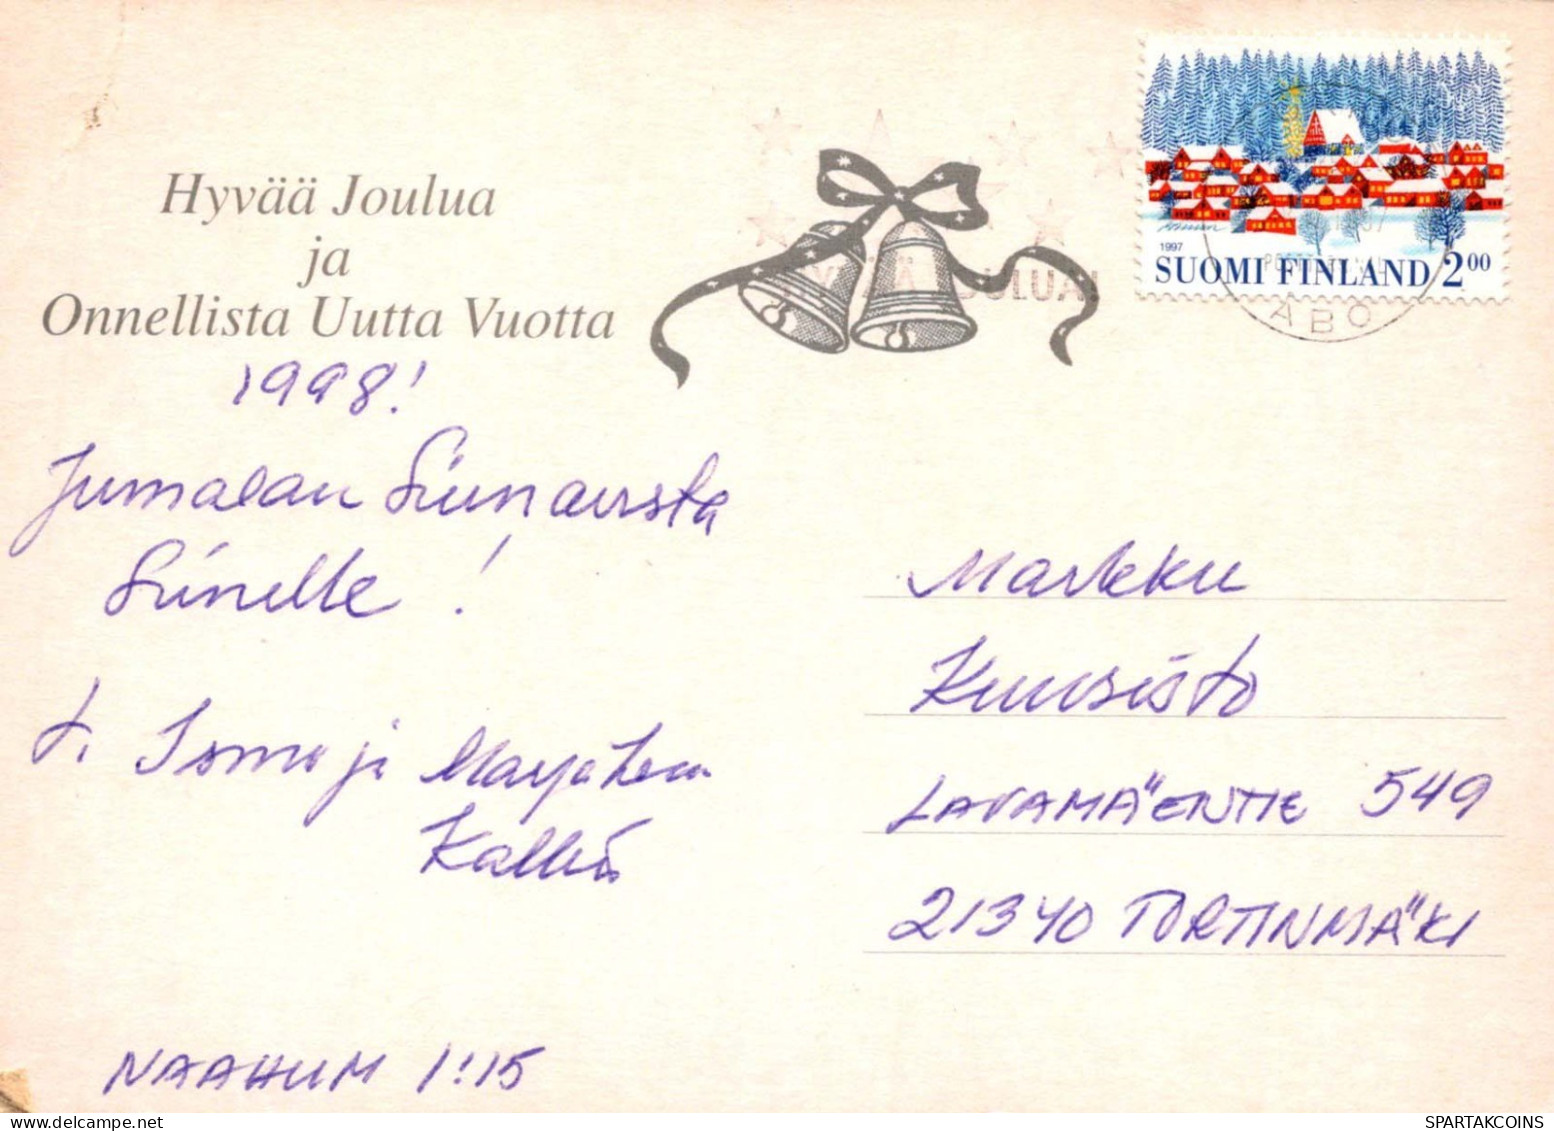 Hyvää Joulua
ja
Onnellista Uutta Vuotta
1998!
Jumalan Siunausta
Sinulle!
t. Ismo ja Marja Leena
Kallio
NAAHUM 1:15
1997
SUOMI FINLAND 2 00
ÅBO
JOULUA!
Markku
Kuusisto
LAVAMÄENTIE 549
21340 TORTINMÄKI
SPARTAKCOINS.COM